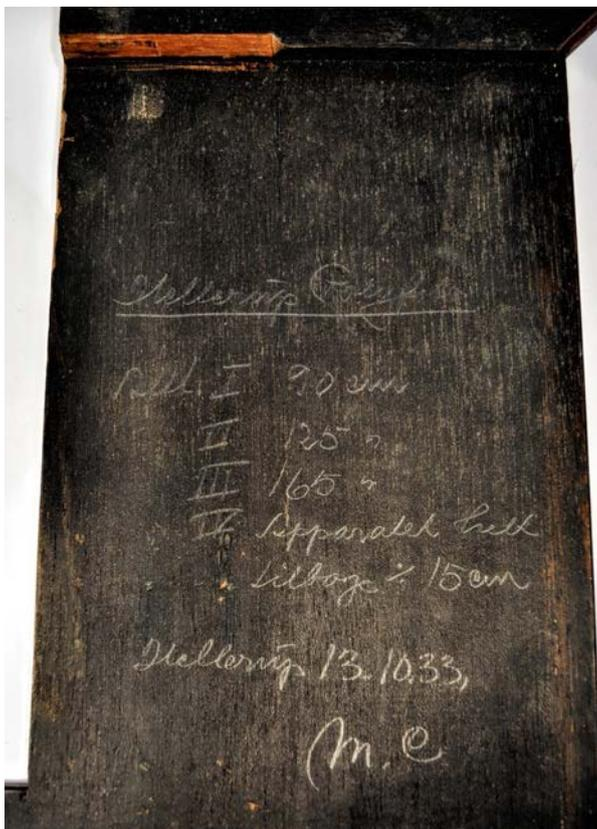 Hellerup
I 90 cm
II 125 "
III 165 "
IV Apparatet helt
" " tilbage ÷ 15 cm
Hellerup 13.10.33,
M. C